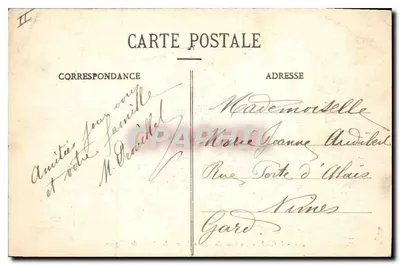 II
CARTE POSTALE
CORRESPONDANCE
Amitiés pour vous
et votre famille
M.
ADRESSE
Mademoiselle
Marie Jeanne
Rue Porte d'Alais
Nimes
Gard.